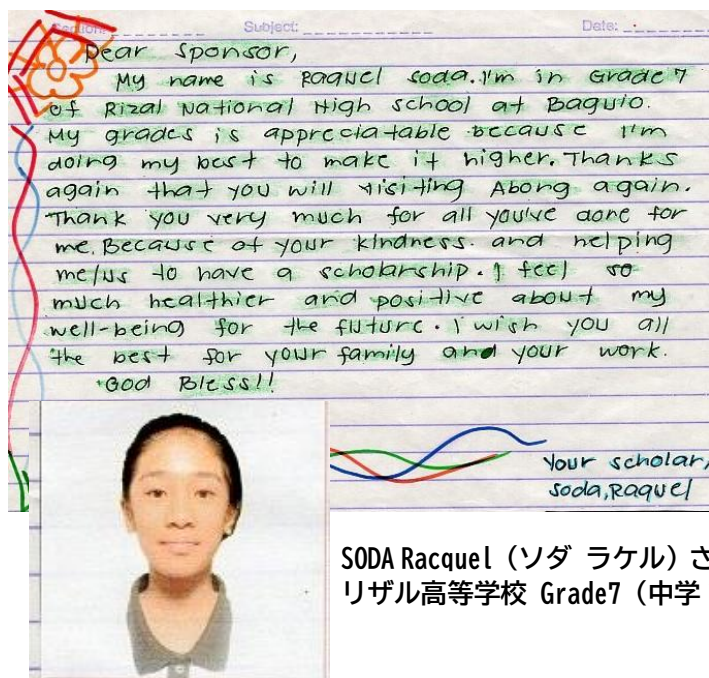 Section: Subject: Date:
Dear Sponsor,
My name is Raquel Soda. I'm in Grade 7
of Rizal National High School at Baguio.
My grades is appreciatable because I'm
doing my best to make it higher. Thanks
again that you will visiting Abong again.
Thank you very much for all you've done for
me. Because of your kindness. and helping
me/us to have a scholarship. I feel so
much healthier and positive about my
well-being for the future. I wish you all
the best for your family and your work.
God Bless!!
Your scholar,
Soda, Raquel
SODA Racquel (ソダ ラケル) さ
リザル高等学校 Grade7 (中学